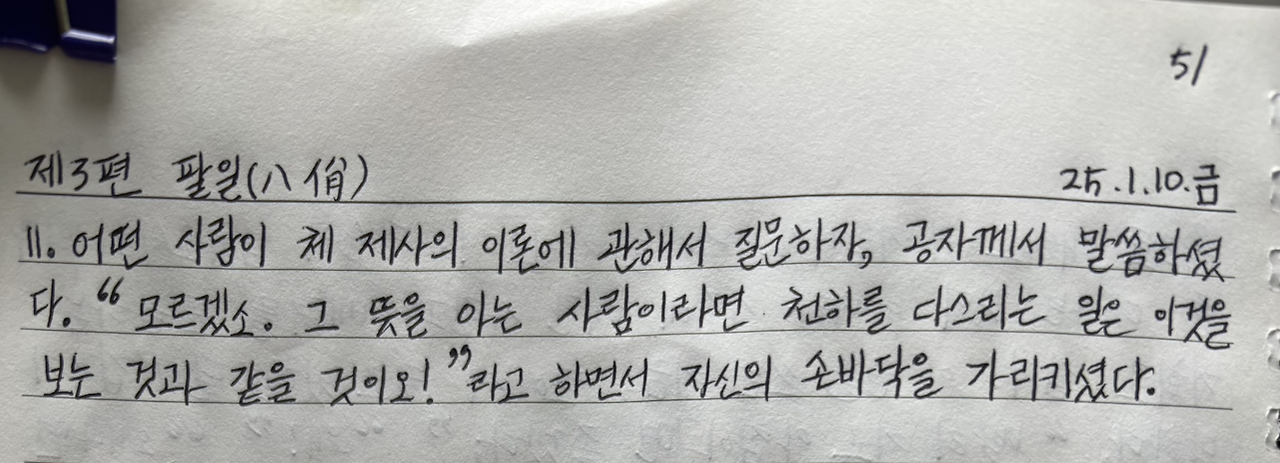 51
제3편 팔일(八佾) 25.1.10.금
11. 어떤 사람이 체 제사의 이론에 관해서 질문하자, 공자께서 말씀하셨
다. “모르겠소. 그 뜻을 아는 사람이라면 천하를 다스리는 일은 이것을
보는 것과 같을 것이오!”라고 하면서 자신의 손바닥을 가리키셨다.